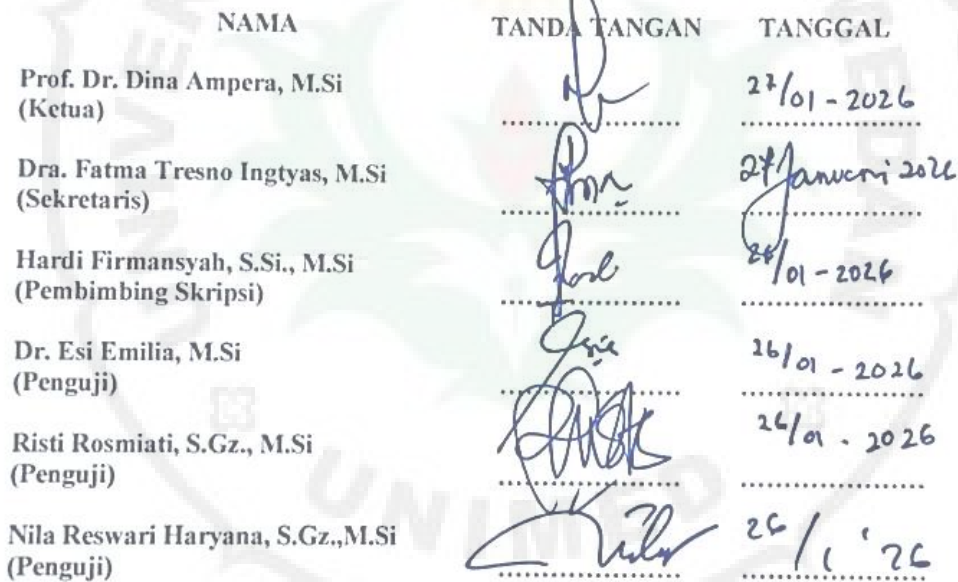 NAMA TANDA TANGAN TANGGAL
Prof. Dr. Dina Ampera, M.Si
(Ketua) 27/01 - 2026
Dra. Fatma Tresno Ingtyas, M.Si
(Sekretaris) 27 Januari 2026
Hardi Firmansyah, S.Si., M.Si
(Pembimbing Skripsi) 26/01 - 2026
Dr. Esi Emilia, M.Si
(Penguji) 26/01 - 2026
Risti Rosmiati, S.Gz., M.Si
(Penguji) 26/01 - 2026
Nila Reswari Haryana, S.Gz.,M.Si
(Penguji) 26/1 '26
UNIMED